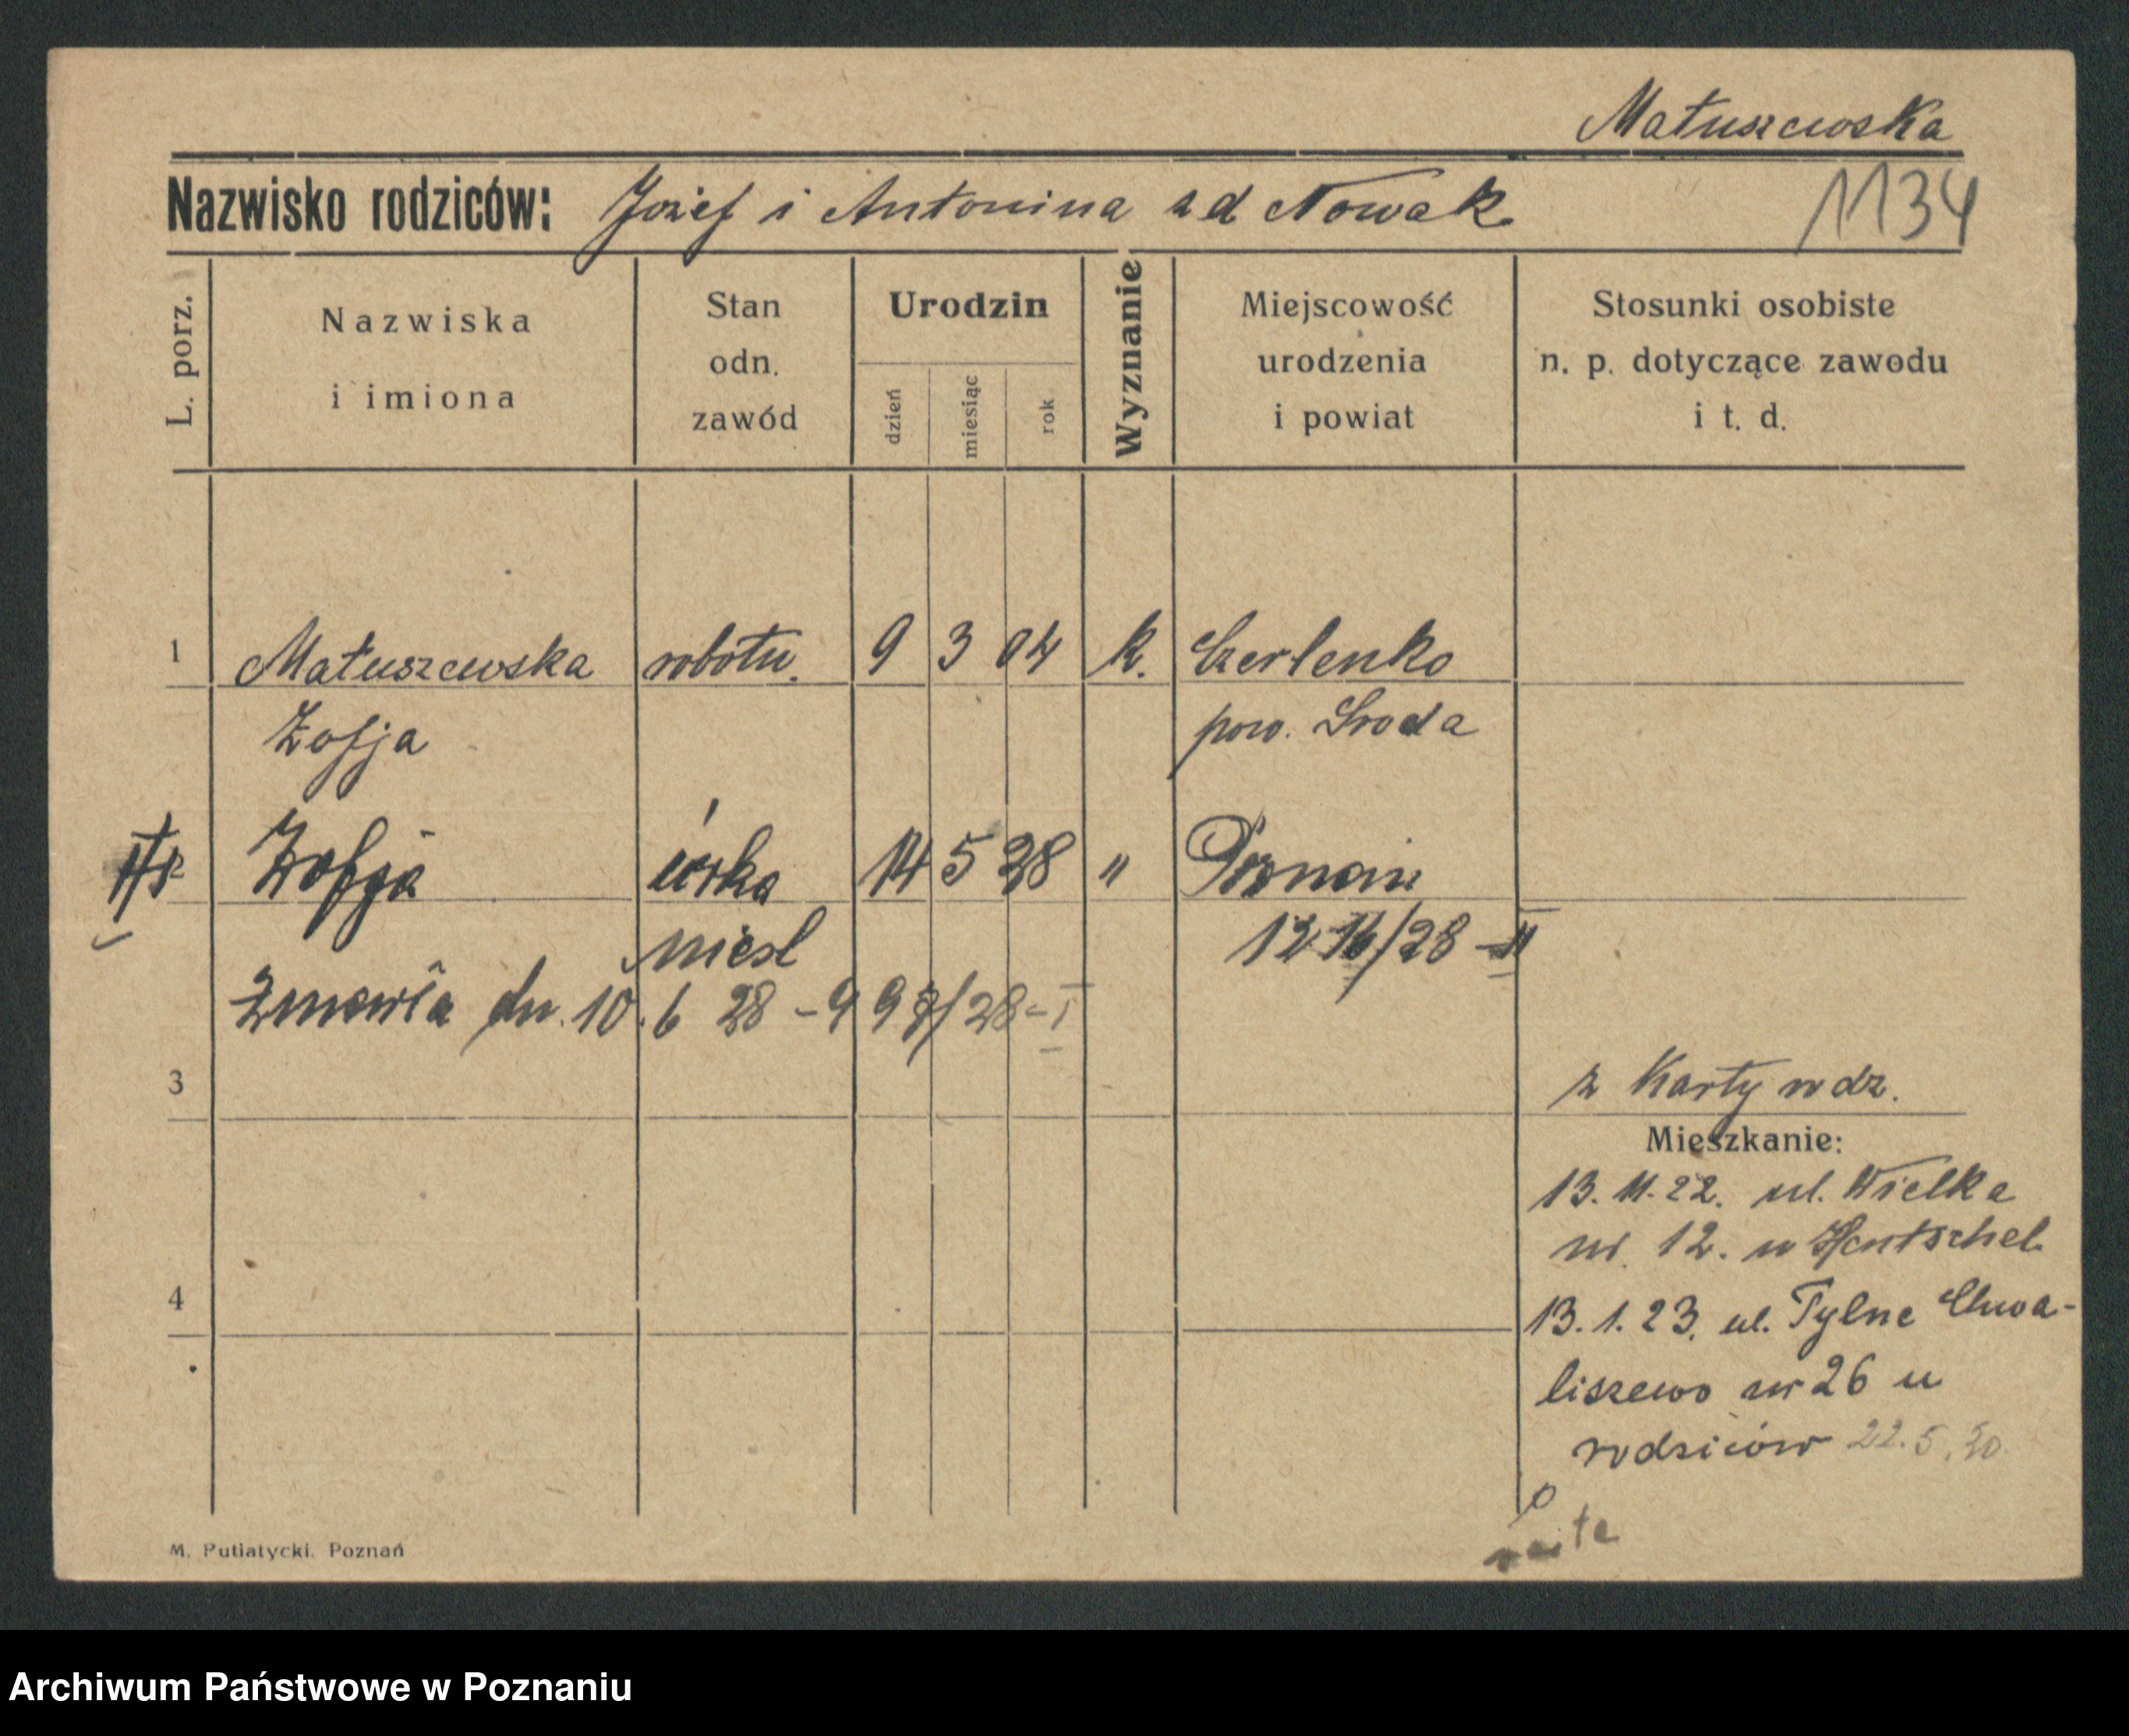 Matuszewska
Nazwisko rodziców: Józef i Antonina zd Nowak
1134
L. porz.
Nazwiska
i imiona
Stan
odn.
zawód
Urodzin
dzień
miesiąc
rok
Wyznanie
Miejscowość
urodzenia
i powiat
Stosunki osobiste
n. p. dotyczące zawodu
i t. d.
1 Matuszewska robotn. 9 3 04 k. Czerlenko
Zofja pow. Sroda
Zofja córka 14 5 28 " Poznań
nieśl 1216/28 - II
Zmarła dn. 10.6 28 - 998/28 - I
3
z Karty rodz.
Mieszkanie:
13. 11. 22. ul. Wielka
nr. 12. u Hentschel
4
13. 1. 23. ul. Tylne Chwa-
liszewo nr 26 u
rodziców 22. 5. 30.
M. Putiatycki. Poznań
Archiwum Państwowe w Poznaniu